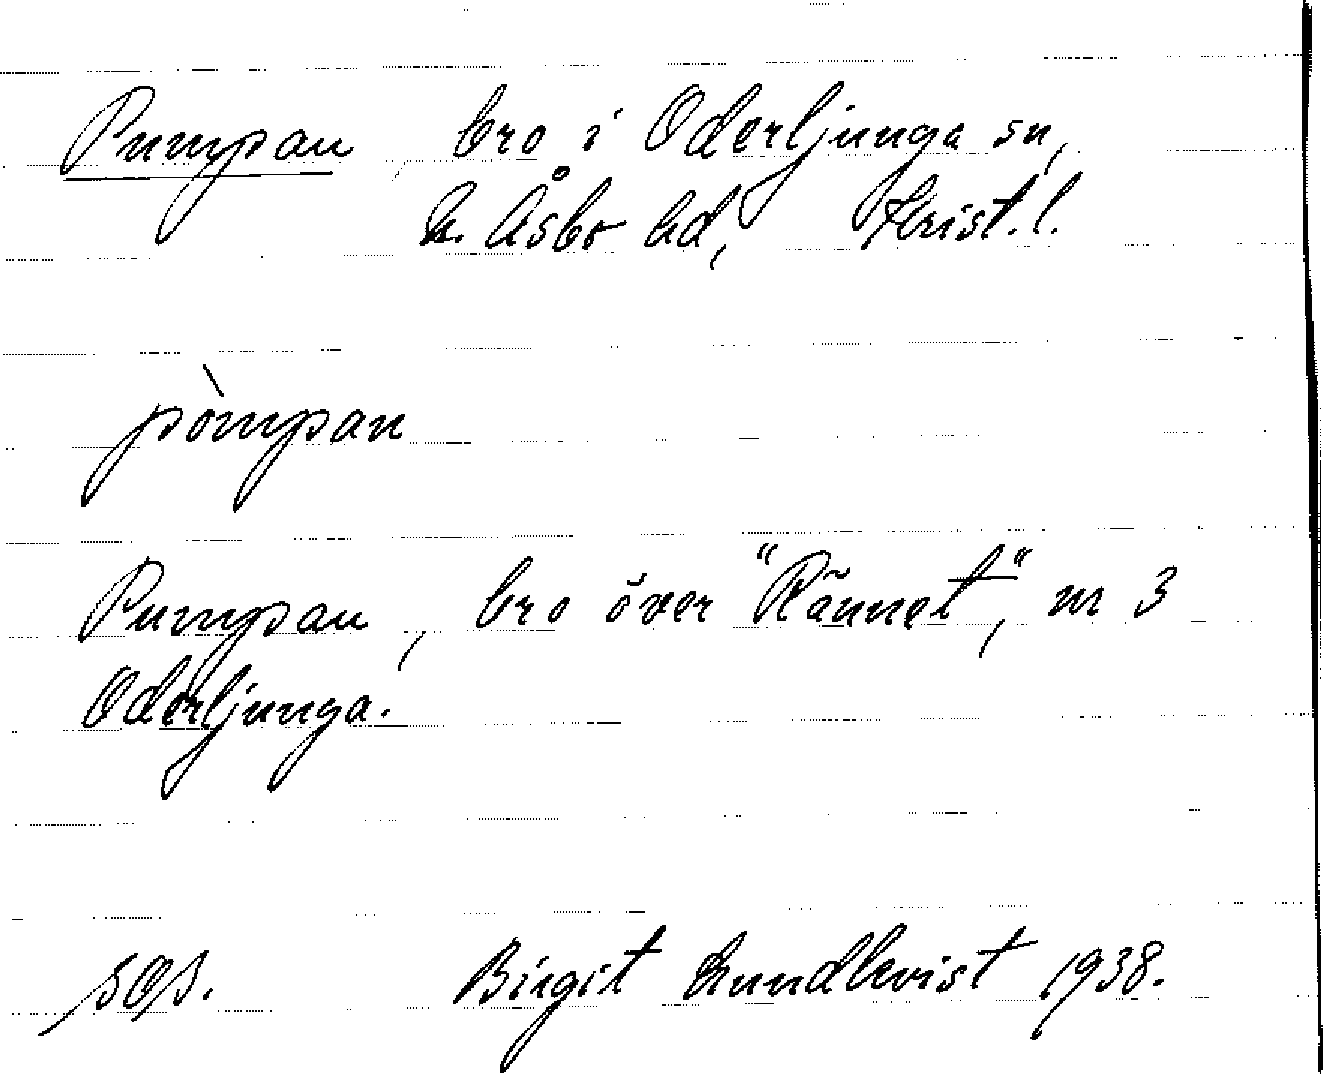 Pumpan, bro i Oderljunga sn,
N. Åsbo hd, Krist. l.
pòmpan
Pumpan, bro över "Rännet", nr 3
Oderljunga.
Birgit Lundkvist 1938.